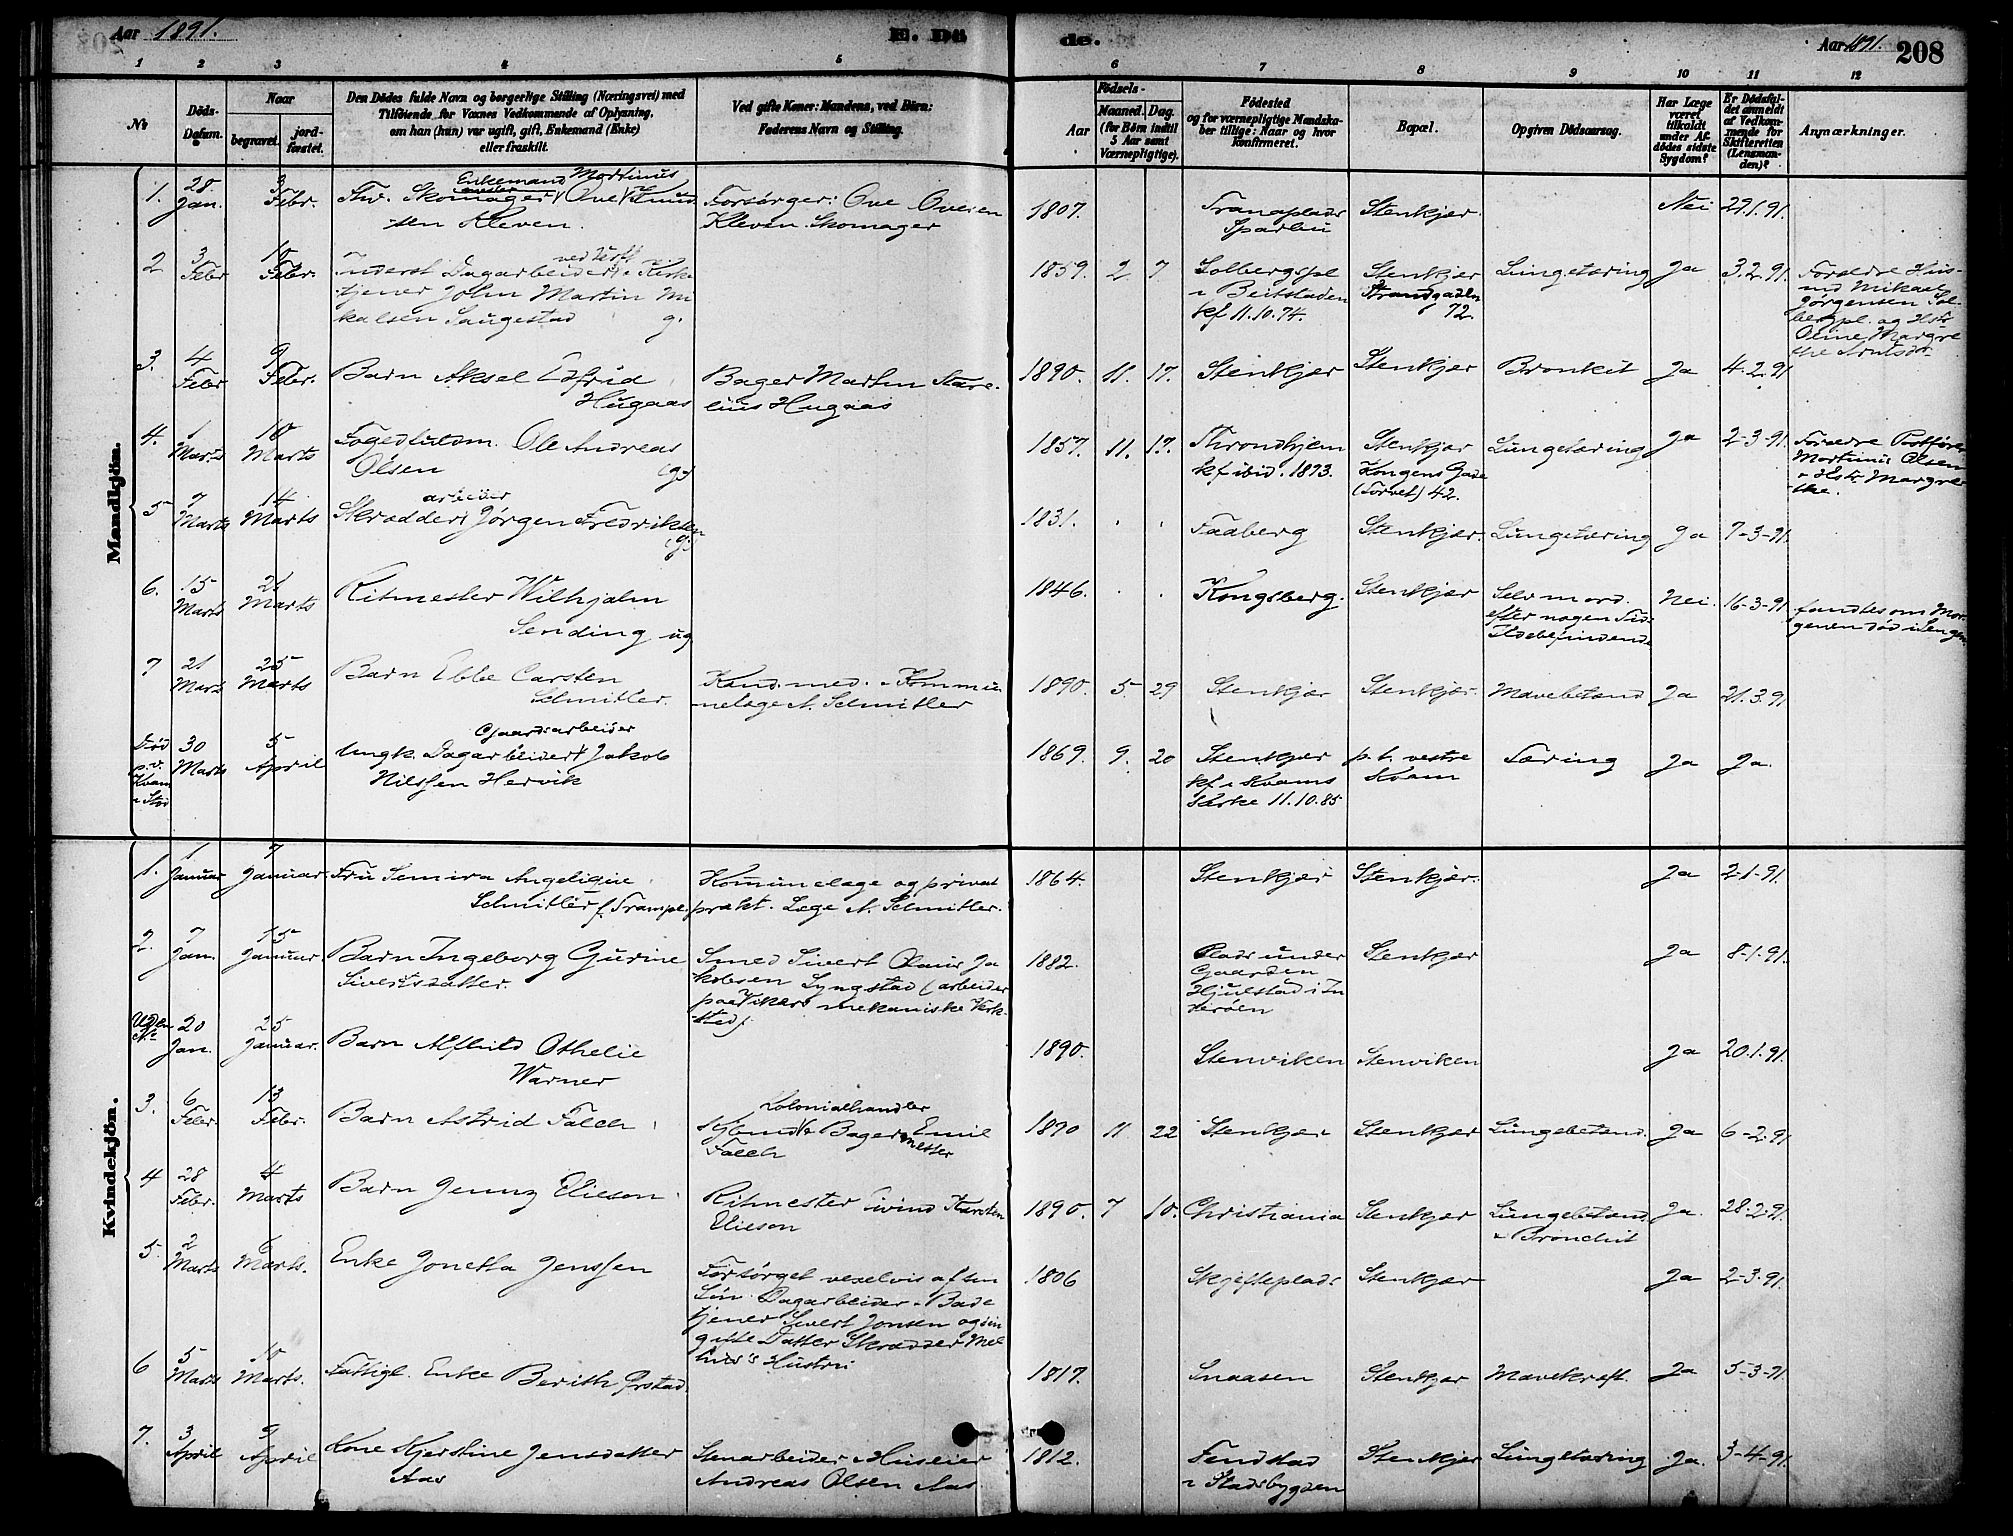 Aar 1891.
E. Dö
de.
Aar 1891.
208
1 2 3 4 5 6 7 8 9 10 11 12
Nr
Döds-
Datum.
Naar
begravet.
jord-
fæstet.
Den Dödes fulde Navn og borgerlige Stilling (Næringsvei) med
Tilföiende for Voxnes Vedkommende af Oplysning,
om han (hun) var ugift, gift, Enkemand (Enke)
eller fraskilt.
Ved gifte Koner: Mandens, ved Börn:
Faderens Navn og Stilling.
Födsels-
Aar
Maaned.
Dag.
(for Börn indtil
5 Aar samt
Værnepligtige).
Födested
og for værnepligtige Mandska-
ber tillige: Naar og hvor
konfirmeret.
Bopæl.
Opgiven Dödsaarsag.
Har Læge
været
tilkaldt
under Af-
dödes sidste
Sygdom?
Er Dödsfal-
det anmeldt
af Vedkom-
mende for
Skifteretten
(Lensman-
den)?
Anmærkninger.
Mandkjön.
1.
28
Jan.
3
Febr.
Enkemand Martinus
Skomager Ove
sen Kleven.
Forsørger: Ove Ovesen
Kleven. Skomager
1807.
Tranaplads
Sparbu
Stenkjer
Nei
29.1.91.
2
3
Febr
10
Febr.
Inderst Dagarbeider Kirke
tjener John Martin Mi
kalsen Saugestad g.
1859. 2 7
Solbergspl
i Beitstaden
kf 11.10.74.
Stenkjer
Strandgaden
72.
Lungetæring
Ja
3.2.91
Forældre Hus-
md Mikael
Jørgensen Sol-
bergpl. og Hstr
Oline Margre
the Arntsdr
3.
4
Febr
9
Febr.
Barn Aksel
Hugaas
Bager Martin
Hugaas
1890. 11. 17.
Stenkjer
Stenkjer
Bronkit
Ja
4.2.91
4.
1
Marts
10
Marts
Fogedfuldm. Ole Andreas
Olsen (g)
1857. 11. 17.
Throndhjem
kf ibid. 1873.
Stenkjer
Kongens Gade
(Torvet) 42.
Lungetæring
Ja
2-3-91.
Forældre
Martinus Olsen
Hstr Margre
the.
5
7
Marts
14
Marts
arbeider
Skrædder Jørgen Fredriksen
(g)
1831. . .
Faaberg
Stenkjer.
Lungetæring
Ja
7-3-91.
6.
15
Marts
21
Marts
Ritmester Wilhjalm
Sending ug
1846. . .
Kongsberg.
Stenkjer
Selvmord.
efter nogen Tids
Ildebefindende
Nei.
16-3-91
fandtes om Mor-
genen død i Sengen
7
21
Marts
25
Marts
Barn Ebbe Carsten
Schmitler.
Kand. med. Kommu-
nelæge A. Schmitler
1890. 5. 29
Stenkjer
Stenkjer.
Mavebetænd
Ja
21.3.91
Død
p.v.
Kvam
i Stod
30
Marts
5
April
Gaardsarbeider
Ungk. Dagarbeider Jakob
Nilssen Hervik
1869. 9. 20
Stenkjer
kf i Kvams
Kirke 11.10.85
p. t. vestre
Kvam
Tæring
Ja
Ja.
Kvindekjön.
1.
1
Januar
7
Januar.
Fru Semira Angelique
Schmitler f. Trampe.
Komunelæge og privat
prakt. Læge A. Schmitler.
1864.
Stenkjer
Stenkjer.
Ja
2-1-91.
2.
7
Jan.
15
Januar.
Barn Ingeborg Gurine
Sivertsdatter.
Smed Sivert Olaus Ja
kobsen Lyngstad (arbeider
paa mekaniske Værk-
sted)
1882.
Plads under
Gaarden
Hjulstad i In
derøen
Stenkjer
Ja
8-1-91.
Uden
Nr
20
Jan.
25
Januar.
Barn Alfhild Othelie
Warner
1890.
Stenviken
Stenviken
Ja
20.1.91.
3.
6
Febr.
13
Febr.
Barn Astrid Falch
Kolonialhandler
Kjbmd & Bagermester Emil
Falch
1890 11. 22
Stenkjer
Stenkjer
Lungebetænd.
Ja
6-2-91
4
28
Febr.
4
Marts
Barn Jenny Elieson.
Ritmester Eivind Karsten
Elieson
1890. 7 10.
Christiania
Stenkjer
Lungebetænd.
& Bronchit
Ja.
28-2-91.
5.
2
Marts
6
Marts.
Enke Jonetta Jenssen
Forsørget vexelvis af sin
Søn Dagarbeider Bade
tjener Sivert Jonsen og sin
gifte Datter Skrædder
Hustru
1806
Skjefteplads
Stenkjer
Ja
2-3.91.
6
5
Marts
10
Marts.
Fattigl. Enke Berith Ørstad
1817.
Snaasen
Stenkjer
Mavekræft.
Ja
5-3-91.
7.
3
April
9
April
Kone Kjerstine Jensdatter
Aas
Stenarbeider Huseier
Andreas Olsen Aas
1812.
Fendstad
i Stadsbygden
Stenkjer
Lungetæring
Ja.
3-4-91.